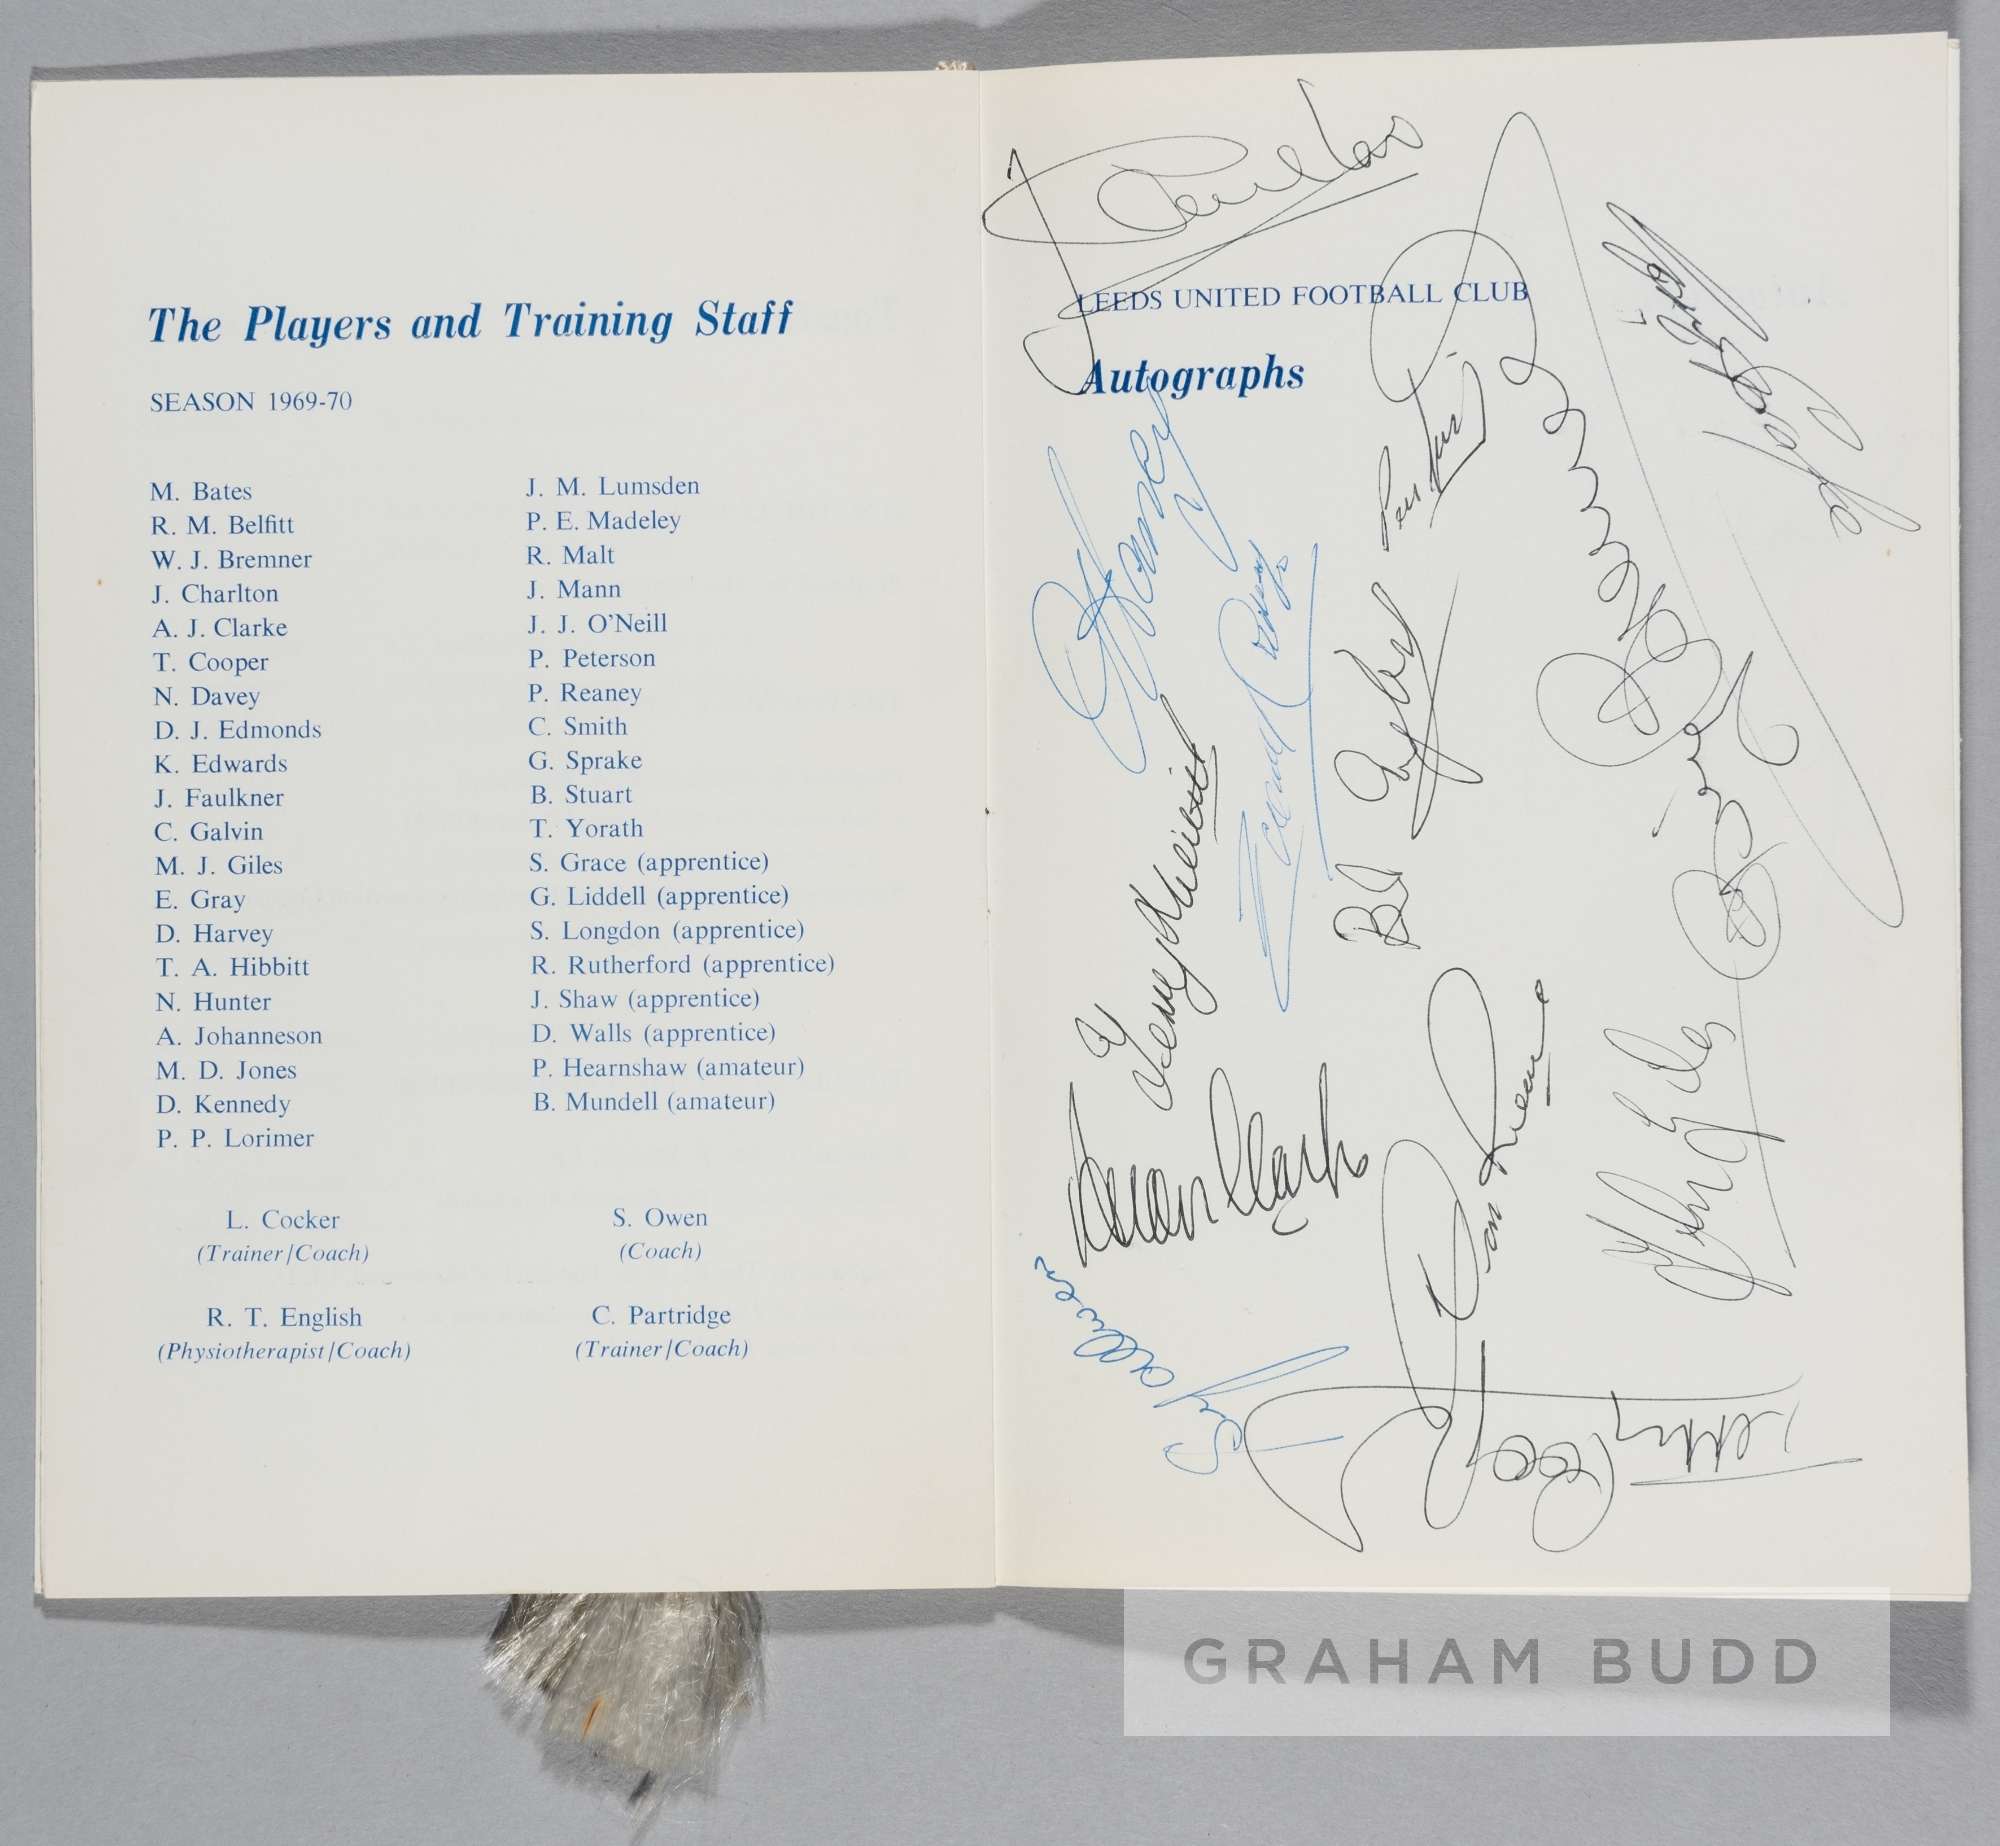 The Players and Training Staff
SEASON 1969-70
M. Bates
R. M. Belfitt
W. J. Bremner
J. Charlton
A. J. Clarke
T. Cooper
N. Davey
D. J. Edmonds
K. Edwards
J. Faulkner
C. Galvin
M. J. Giles
E. Gray
D. Harvey
T. A. Hibbitt
N. Hunter
A. Johanneson
M. D. Jones
D. Kennedy
P. P. Lorimer
J. M. Lumsden
P. E. Madeley
R. Malt
J. Mann
J. J. O'Neill
P. Peterson
P. Reaney
C. Smith
G. Sprake
B. Stuart
T. Yorath
S. Grace (apprentice)
G. Liddell (apprentice)
S. Longdon (apprentice)
R. Rutherford (apprentice)
J. Shaw (apprentice)
D. Walls (apprentice)
P. Hearnshaw (amateur)
B. Mundell (amateur)
L. Cocker
(Trainer/Coach)
S. Owen
(Coach)
R. T. English
(Physiotherapist/Coach)
C. Partridge
(Trainer/Coach)
LEEDS UNITED FOOTBALL CLUB
Autographs
J Charlton
D Harvey
Bob English
Bremner
Terry Hibbitt
Allan Clarke
Don Revie
Johnny Giles
GRAHAM BUDD